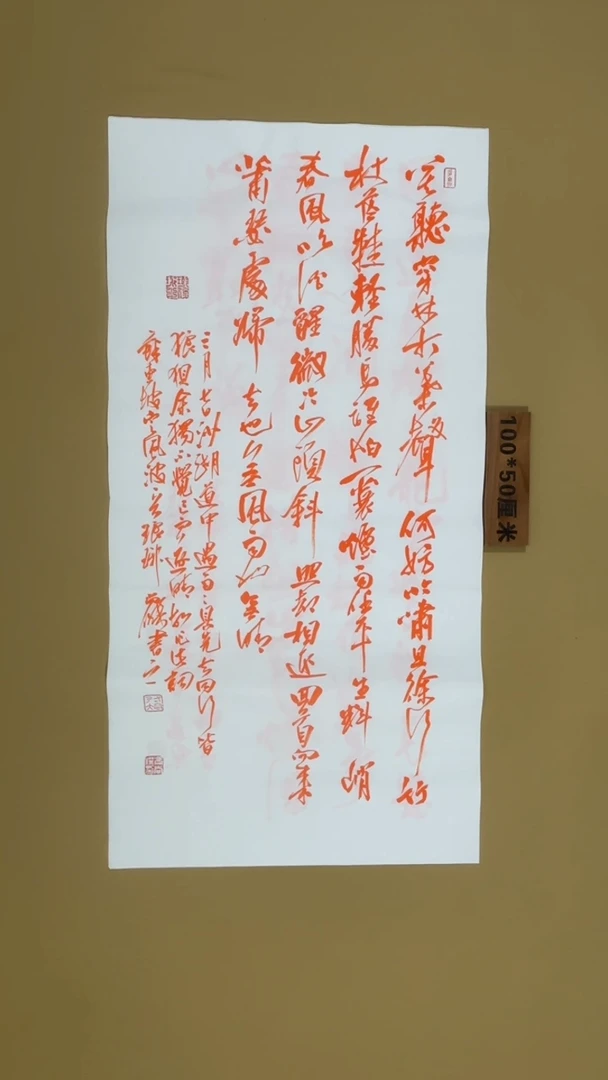 莫聽穿林打葉聲何妨吟嘯且徐行竹
杖芒鞋輕勝馬誰怕一蓑煙雨任平生料峭
春風吹酒醒微冷山頭斜照却相迎回首向來
蕭瑟處歸去也無風雨也無晴
三月七日沙湖道中遇雨雨具先去同行皆
狼狽余獨不覺已而遂晴故作此詞
蘇東坡定風波 書之
100*50厘米